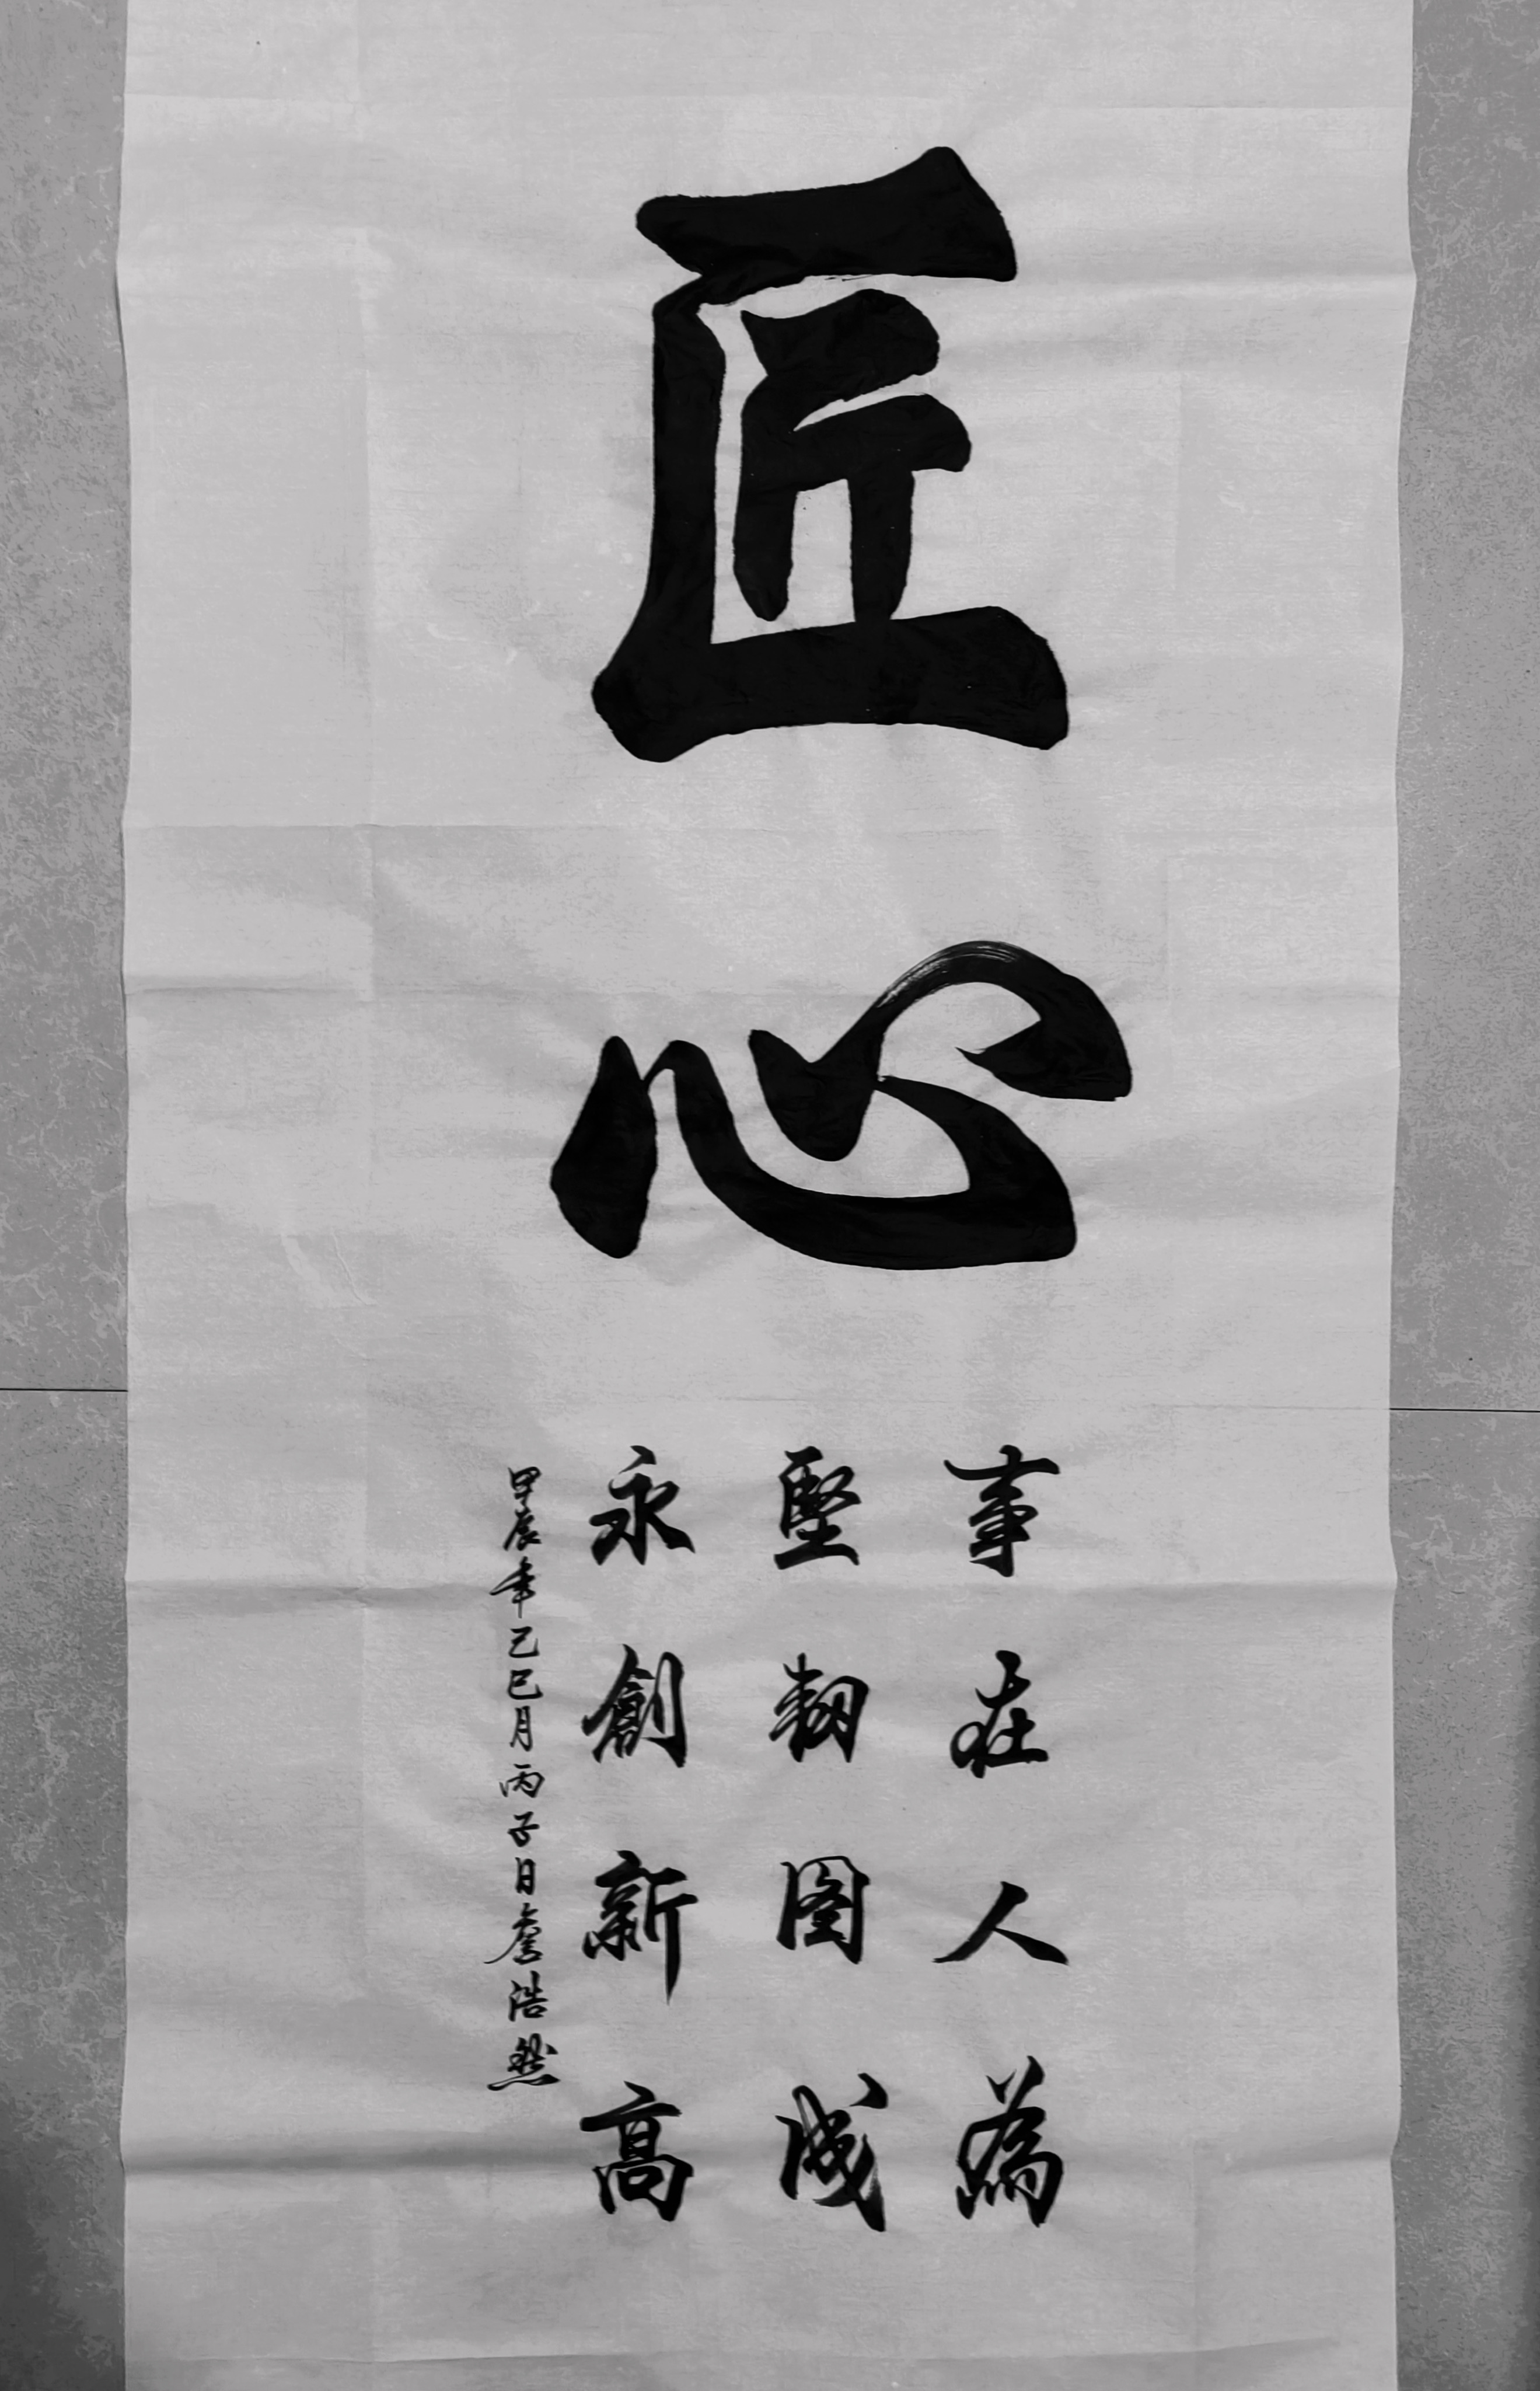 匠心
事在人為
堅韌圖成
永創新高
甲辰年己巳月丙子日詹浩然